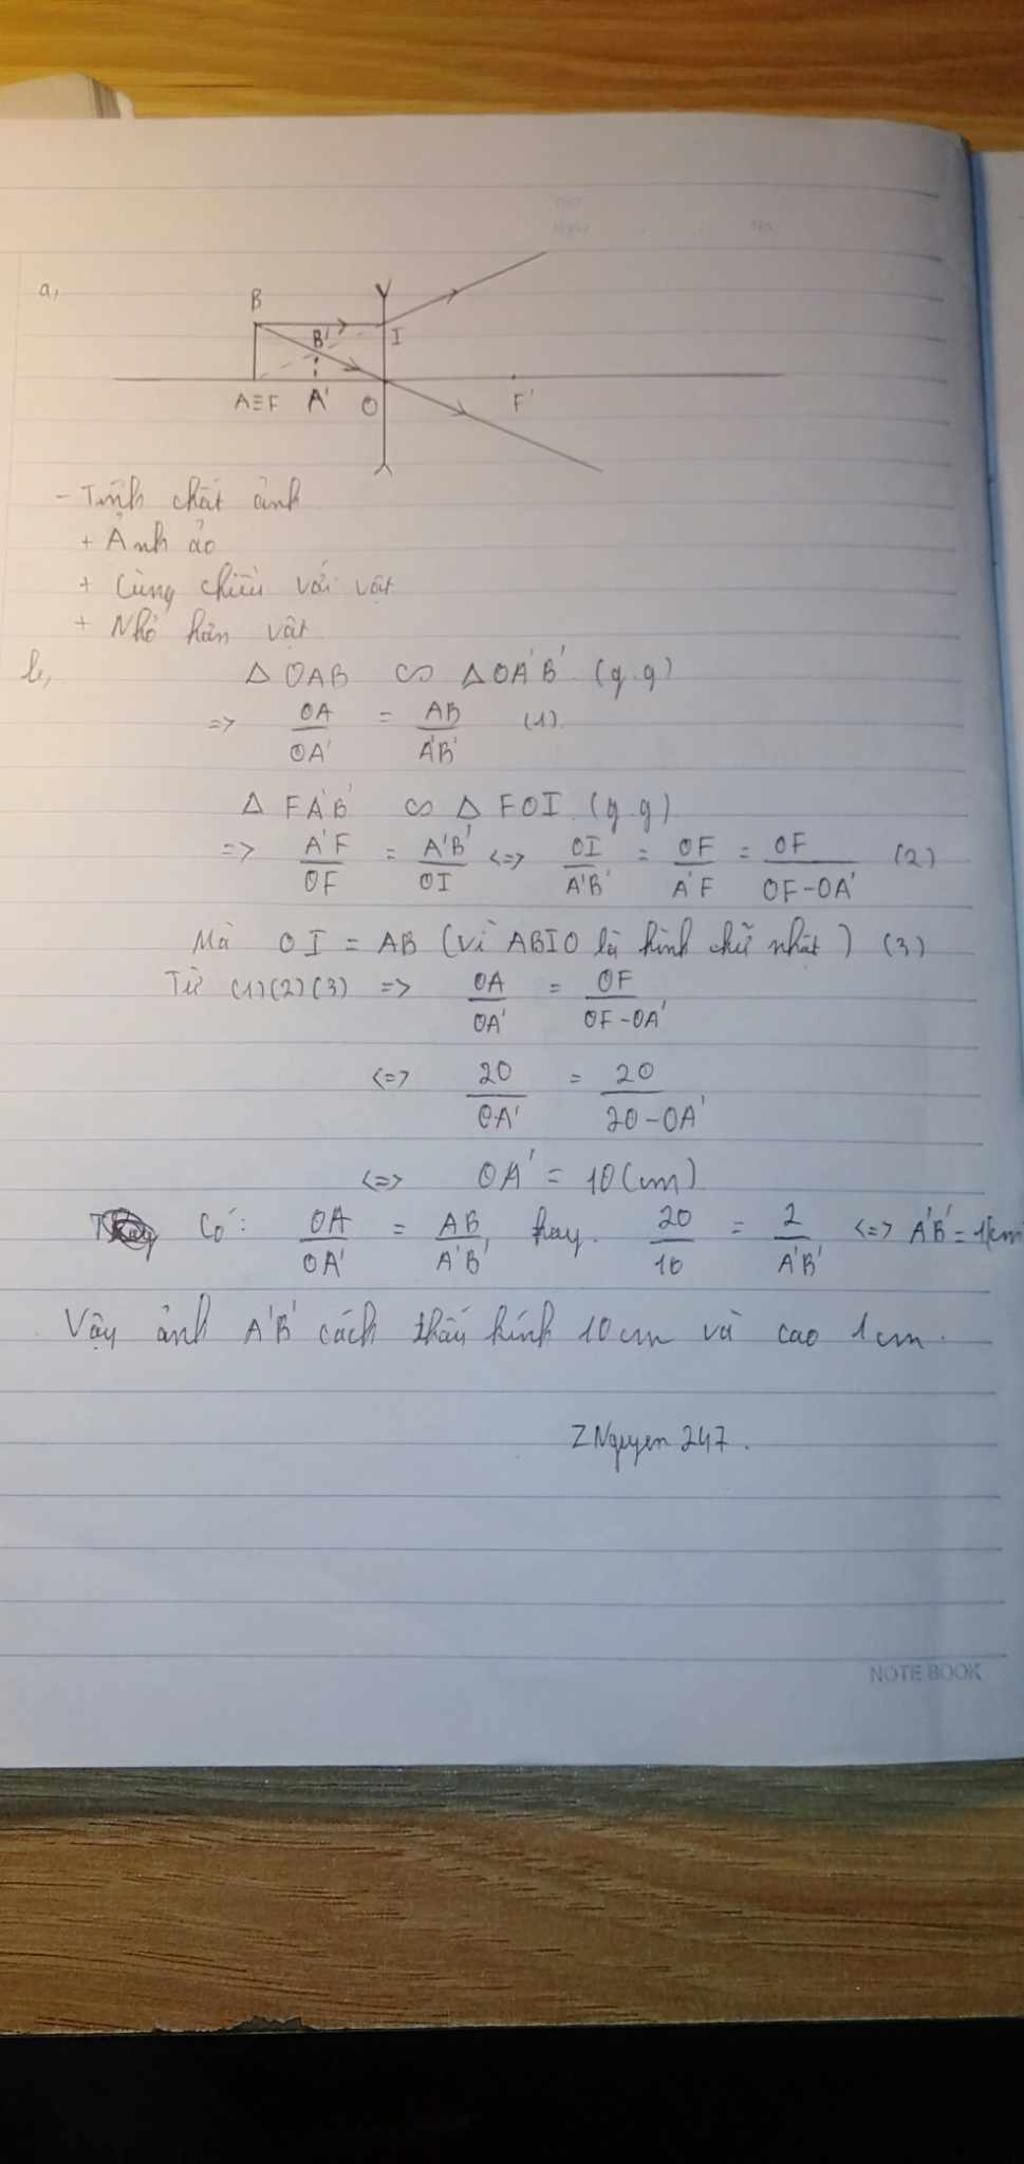 a,
B
B'
I
A≡F A' O F'
- Tính chất ảnh
+ Ảnh ảo
+ Cùng chiều với vật
+ Nhỏ hơn vật
b,
Δ OAB ∽ Δ OA'B' (g.g)
=> OA/OA' = AB/A'B' (1)
Δ FA'B' ∽ Δ FOI (g.g)
=> A'F/OF = A'B'/OI <=> OI/A'B' = OF/A'F = OF/OF-OA' (2)
Mà OI = AB (Vì ABIO là hình chữ nhật) (3)
Từ (1)(2)(3) => OA/OA' = OF/OF-OA'
<=> 20/OA' = 20/20-OA'
<=> OA' = 10(cm)
Có: OA/OA' = AB/A'B', hay. 20/10 = 2/A'B' <=> A'B' = 1(cm
Vậy ảnh A'B' cách thấu kính 10cm và cao 1cm.
ZNguyen247.
NOTE BOOK